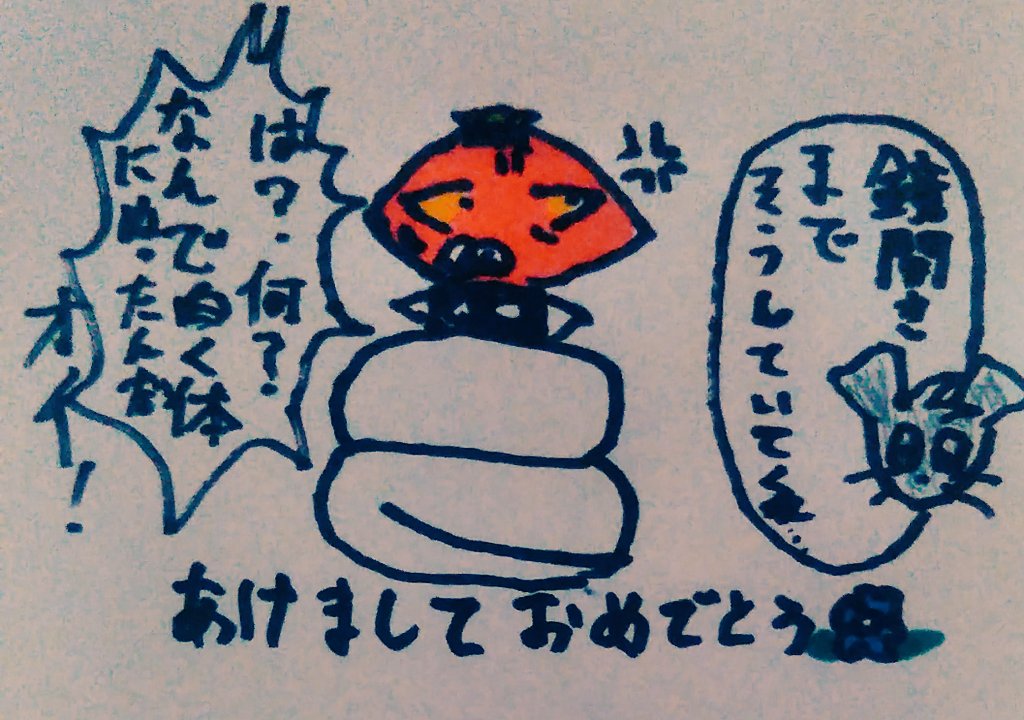 鏡開き
まで
そうしていてくれ…
は？何？
なんで白く体
になったんだ
オイ！
あけましておめでとう